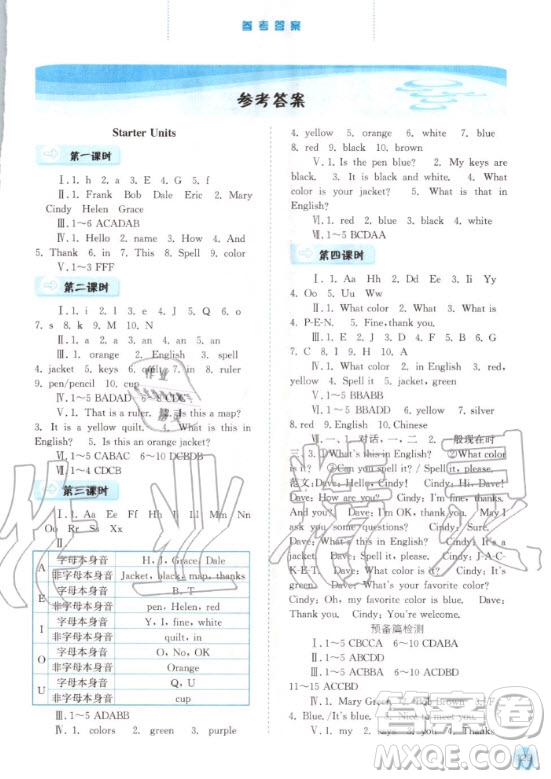 参考答案
参考答案
Starter Units
第一课时
Ⅰ.1. h  2. a  3. E  4. G  5. f
Ⅱ.1. Frank  Bob  Dale  Eric  2. Mary
Cindy  Helen  Grace
Ⅲ.1～6 ACADAB
Ⅳ.1. Hello  2. name  3. How  4. And
5. Thank  6. in  7. This  8. spell  9. color
Ⅴ.1～3 FFF
第二课时
Ⅰ.1. i  2. l  3. e  4. J  5. K  6. Q  7. o
7. s  8. k  9. M  10. N
Ⅱ.1. a  2. an  3. a  4. an  5. an
Ⅲ.1. orange  2. English  3. spell
4. jacket  5. keys  6. quilt  7. in  8. ruler
9. pen/pencil  10. cup
Ⅳ.1～5 BADAD  6～8 CDC
Ⅴ.1. That is a ruler.  2. Is this a map?
3. It is a yellow quilt.  4. What is this in
English?  5. Is this an orange jacket?
Ⅵ.1～5 CABAC  6～10 DCBDB
Ⅶ.1～4 CDCB
第三课时
Ⅰ.1. Aa  Ee  Ff  Ii  Ll  Mm  Nn
Oo  Rr  Ss  Xx
Ⅱ.
A 字母本身音 H, J, Grace, Dale
非字母本身音 Jacket, black, map, thanks
E 字母本身音 B, T
非字母本身音 pen, Helen, red
I 字母本身音 Y, I, fine, white
非字母本身音 quilt, in
O 字母本身音 O, No, OK
非字母本身音 Orange
U 字母本身音 Q, U
非字母本身音 cup
Ⅲ.1～5 ADABB
Ⅳ.1. colors  2. green  3. purple
4. yellow  5. orange  6. white  7. blue
8. red  9. black  10. brown
Ⅴ.1. Is the pen blue?  2. My keys are
black.  3. It is black and white.  4. What
color is your jacket?  5. What is that in
English?
Ⅵ.1. red  2. blue  3. black
Ⅶ.1～5 BCDAA
第四课时
Ⅰ.1. Aa  Hh  2. Bb  Ee  3. Ff  Ll
4. Oo  5. Uu  Ww
Ⅱ.1. What color  2. What is  3. an
4. P-E-N.  5. Fine, thank you.
Ⅲ.1. What color  2. in English  3. red,
yellow  4. spell it, please  5. jacket, green
Ⅳ.1～5 BBABB
Ⅴ.1～5 BBADD  6. yellow  7. silver
8. red  9. black  10. Chinese
Ⅵ.一、1. 对话,一、二  2. 一般现在时
三、3. ①What's this in English?  ②What color
is it?  ③Can you spell it? / Spell it, please.
范文:Dave: Hello, Cindy!  Cindy: Hello,
Dave! How are you?  Cindy: I'm fine, thanks.
And you?  Dave: I'm OK, thank you. May I
ask you some questions?  Cindy: Yes.
Sure.  Dave: What is this in English?  Cindy:
It's a jacket.  Dave: Spell it, please.  Cindy: J-A-C-
K-E-T.  Dave: What color is it?  Cindy: It's
green.  Dave: What's your favorite color?
Cindy: Oh, my favorite color is blue.  Dave:
Thank you.  Cindy: You're welcome.
预备篇检测
Ⅰ.1～5 CBCCA  6～10 CDABA
Ⅱ.1～5 ABCDD
Ⅲ.1～5 ACBBA  6～10
11～15 ACCBD
Ⅳ.1. Mary Green
4. Blue./It's blue.  5. Nice to meet you.
Ⅴ.1. my  2. says  3. you